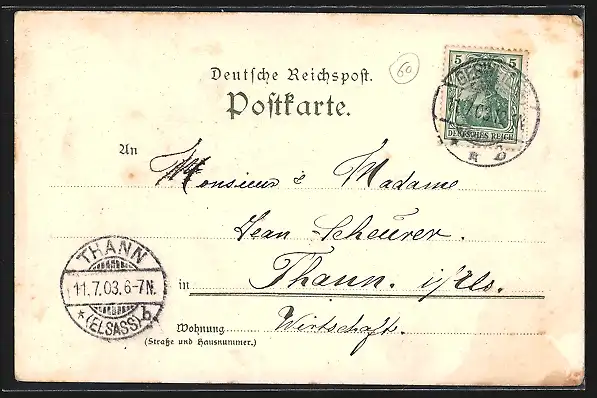 60
Deutsche Reichspost.
Postkarte.
5 5
DEUTSCHES REICH
An Monsieur & Madame
Jean Scheurer.
in Thann. i/Els.
Wohnung Wirtschaft.
(Straße und Hausnummer.)
THANN
11.7.03.6-7N.
*(ELSASS) b.